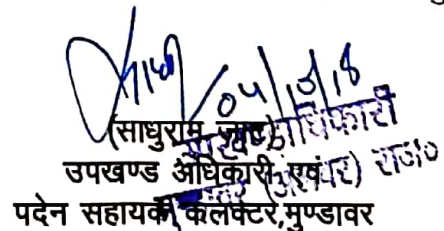 04/10/18
(साधुराम जाट)
उपखण्ड अधिकारी एवं
पदेन सहायक कलक्टर,मुण्डावर
उपखण्ड अधिकारी
(अलवर) राज०